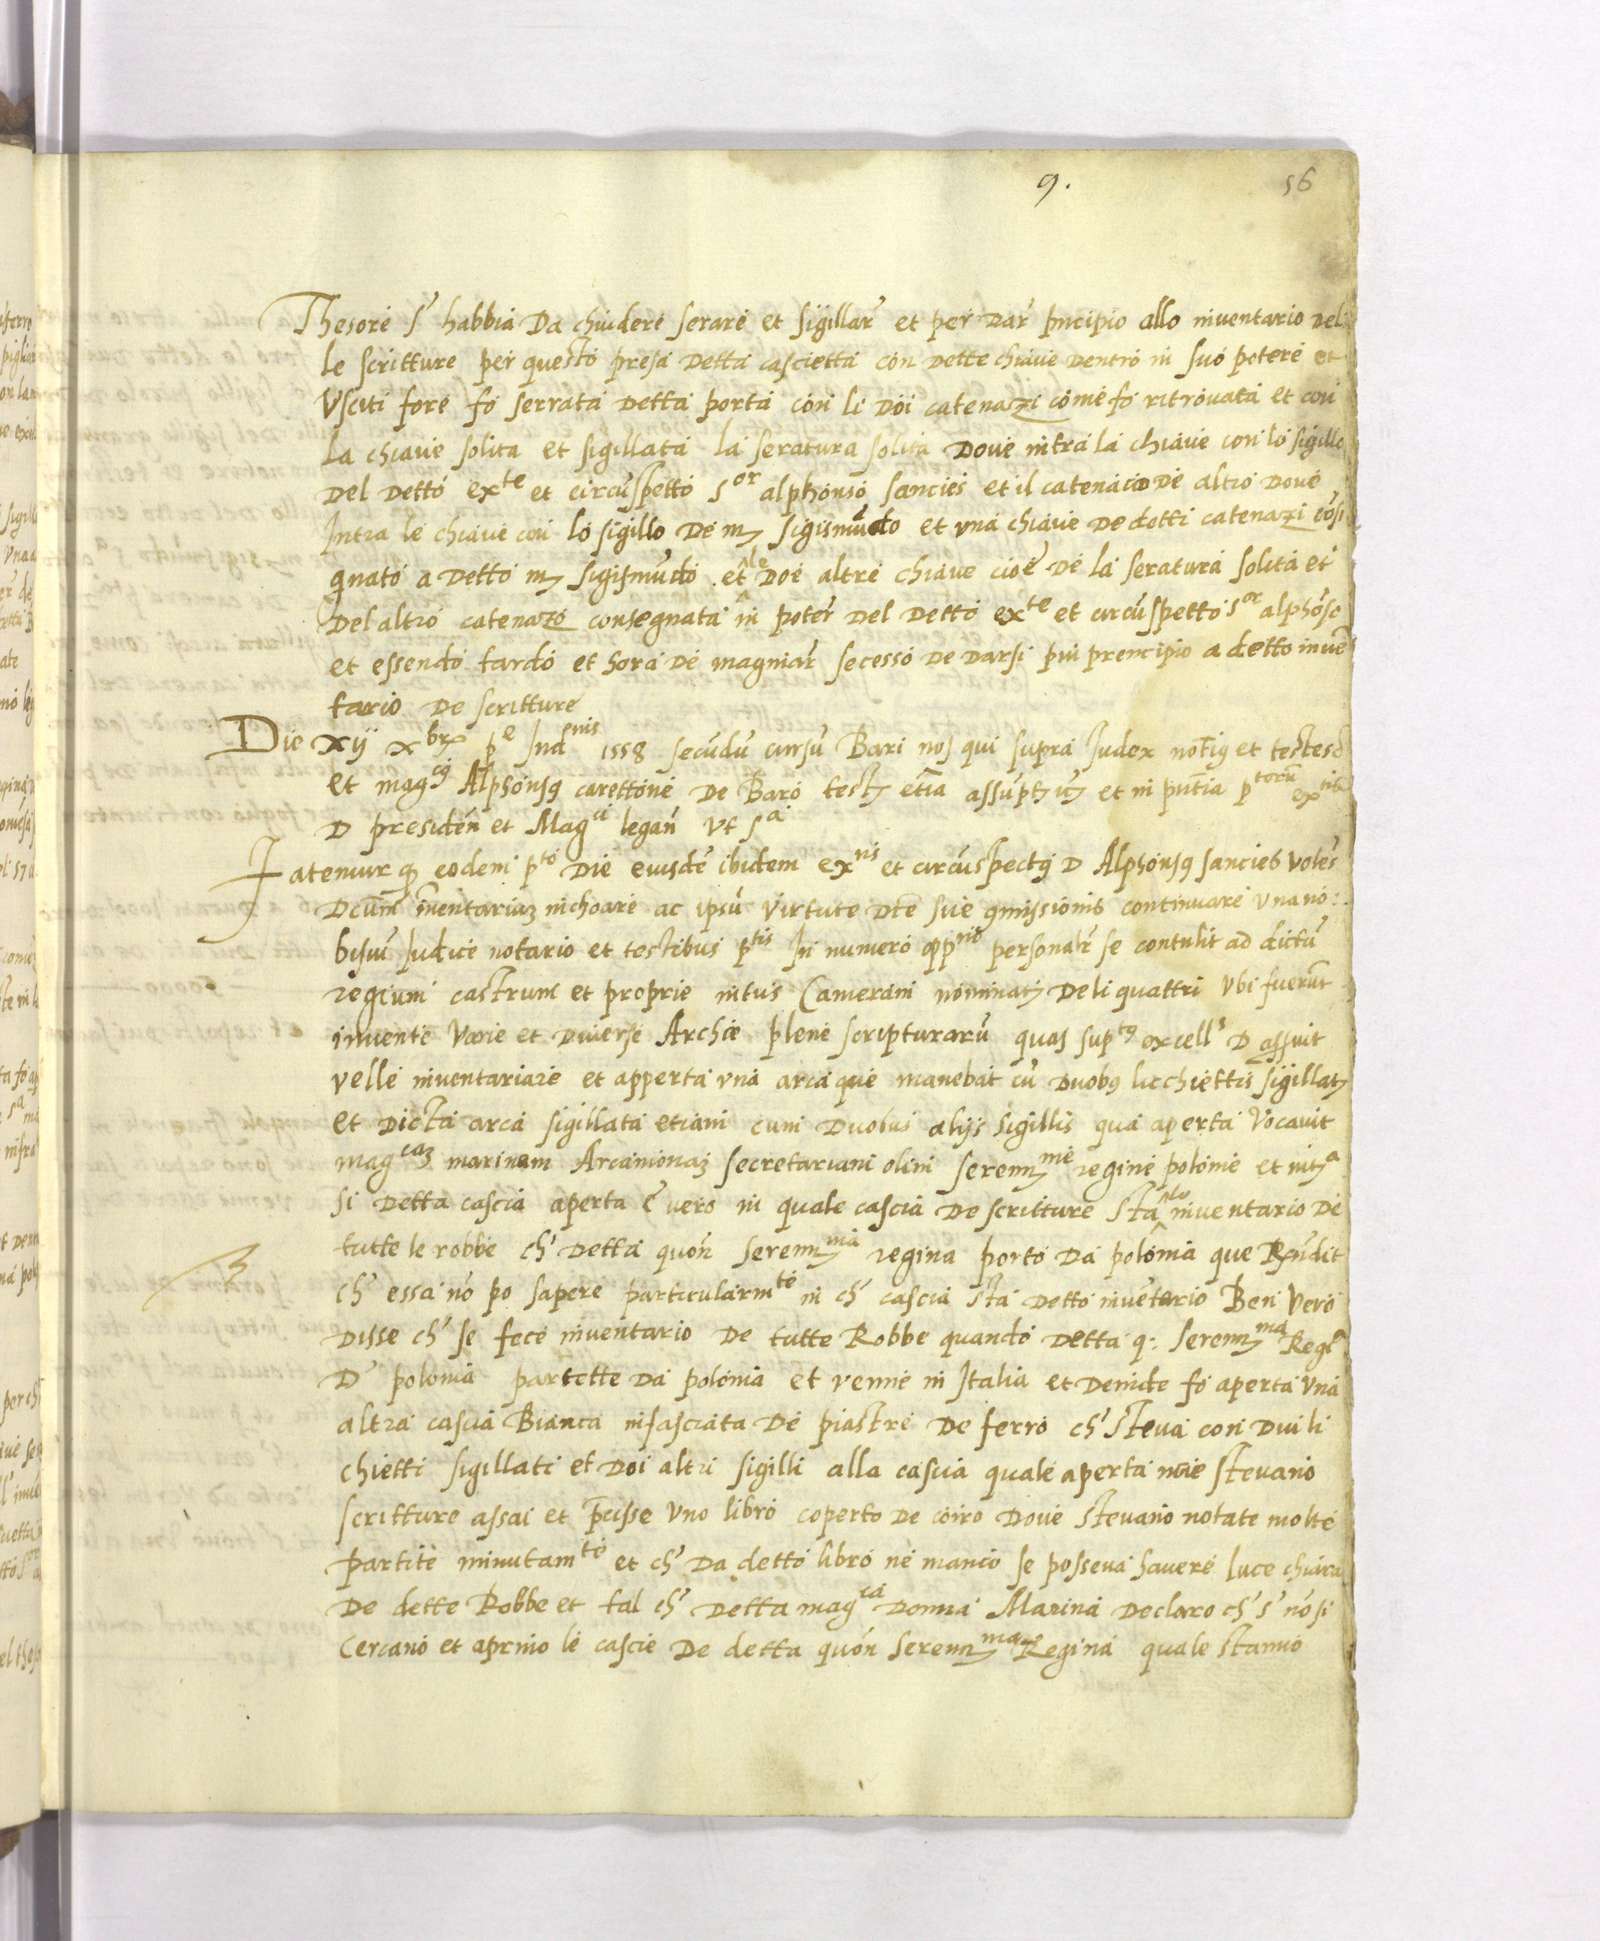 9. 56
Thesoré s' habbia da chiudere serare et sigillar et per dar p̄ncipio allo inventario del
le scritture per questo presa detta cascietta con dette chiave dentro in suo potere et
Usciti fore fo serrata detta porta con li doi catenazi come fo ritrovata et con
La chiave solita et sigillata la seratura solita dove intra la chiave con lo sigillo
del detto ex^te et circũspetto s^or alphonso sancies et il catenacio de altro dove
Intra le chiave con lo sigillo de m sigismũdo et una chiave de detti catenazi cõsi
gnato a detto m sigismũdo et le doe altre chiave cioe de la seratura solita et
del altro catenazo consegnata in poter del detto ex^te et circũspetto s^or alphõso
et essendo tardo et hora de magniar secesso de darsi piu prencipio a detto invẽ
tario de scritture
Die xij x^br p^e Ind^nis 1558 secũdũ cursũ Bari nos qui supra Iudex not et testes
et mag^cus Alphonsus carettone de Baro test etiã assũpt et in pñtia p^torũ ex^tis
D presidẽn et Mag^ci legañ ut s^a
Fatemur q eodem p^to die eiusdẽ ibidem ex^tis et circũspectus D Alphonsus sancies volẽs
dcũm inventariũ inchoare ac ipsũ virtute dte sue comissionis continuare una no:
biscũ Iudice notario et testibus p^tis In numero opp^no personalr se contulit ad dictũ
regium castrum et proprie intus Camerini nominat deli quattri ubi fuerũt
invente varie et diverse Archie plene scripturarũ quas sup^tus excell^s D assuit
velle inventariare et apperta una arca que manebat cũ duobus licchiettis sigillat
et dicta arca sigillata etiam cum duobus alijs sigillis qua aperta vocavit
mag^cam marinam Arcamonam secretariam olim seren^me regine polonie et int^a
si detta cascia aperta è vero in quale cascia de scritture sta lo inventario de
tutte le robbe ch' detta quon seren^ma regina porto da polonia que Rñdit
ch' essa nõ po sapere particularm^te in ch' cascia sta detto invẽtario Ben vero
disse ch' se fece inventario de tutte Robbe quando detta q: seren^ma Reg^a
D' polonia partette da polonia et venne in Italia et deinde fo aperta una
altra cascia Bianca infasciata de piastre de ferro ch' steva con dui li
chietti sigillati et doi altri sigilli alla cascia quale aperta nce stevano
scritture assai et p̄cisse uno libro coperto de coiro dove stevano notate molte
partite minutam^te et ch' da detto libro ne manco se posseva havere luce chiara
de dette Robbe et tal ch' detta mag^ca donna Marina declaro ch' s' nõ si
cercano et apreno le cascie de detta quon seren^ma Regina quale stanno